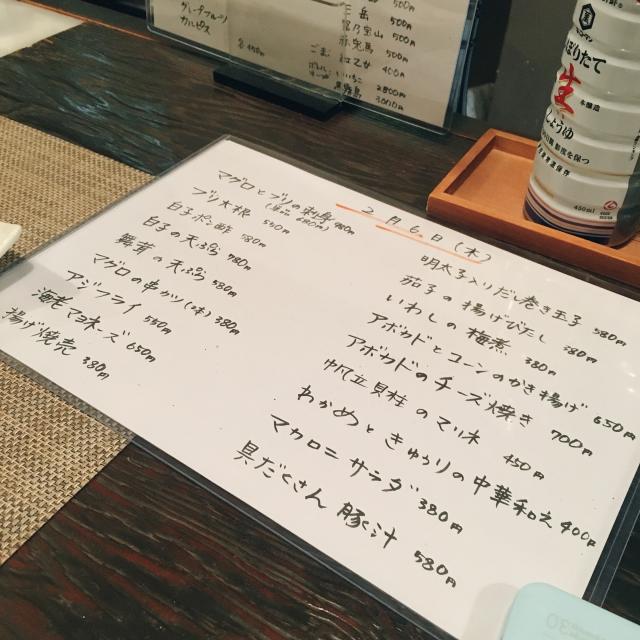 2月6日(木)
マグロとブリの刺身
ブリ大根
白子ポン酢 780円
白子の天ぷら 780円
舞茸の天ぷら 580円
マグロの串かつ(2本) 380円
アジフライ 550円
海老マヨネーズ 650円
揚げ焼売 380円
明太子入りだし巻き玉子 580円
茄子の揚げびたし
いわしの梅煮
アボカドとコーンのかき揚げ 650円
アボカドのチーズ焼き 700円
帆立貝柱のマリネ 450円
わかめときゅうりの中華和え 400円
マカロニサラダ 380円
具だくさん豚汁 580円
グレープフルーツ
カルピス
各400
500円
500円
500円
400円
2800円
しぼりたて
生
しょうゆ
450ml